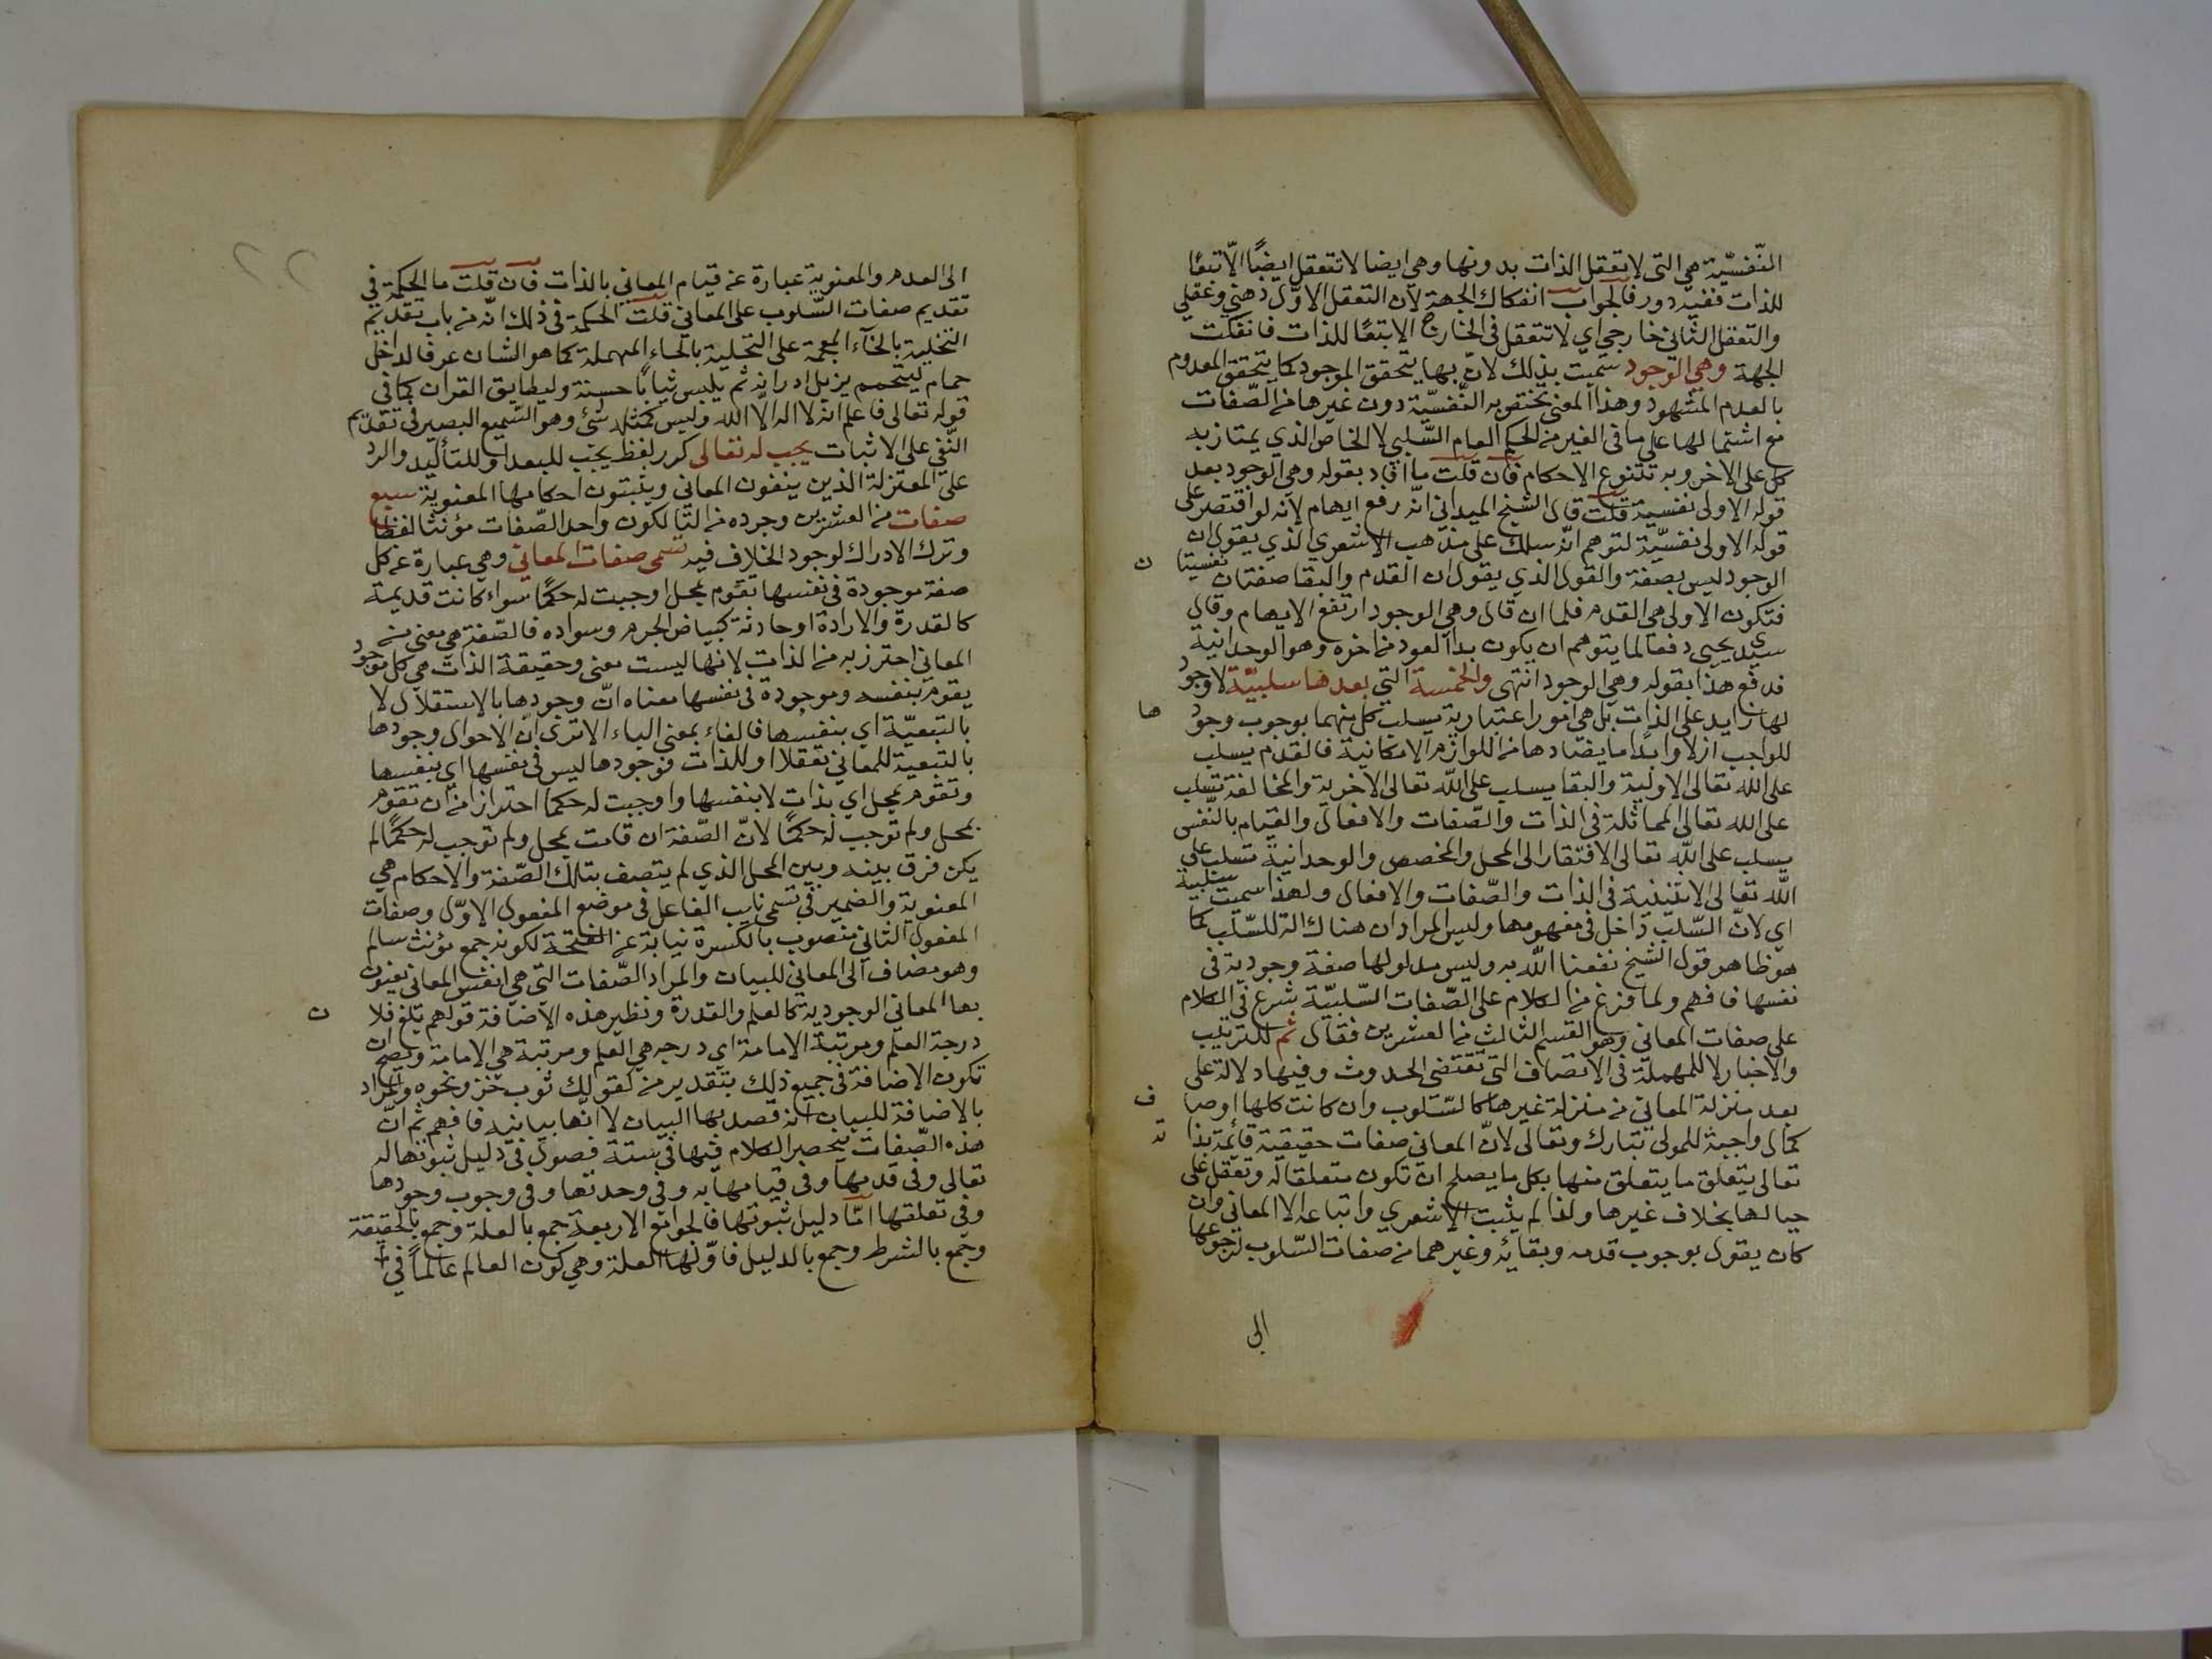 النّفسيّة هي التى لا تتعقل الذات بدونها وهي ايضا لا تتعقل ايضًا الّا تبعًا
للذات ففيه دور فالجواب انفكاك الجهة لان التعقل الاوّل ذهني وعقلي
والتعقل الثانى خارجي اي لا تتعقل فى الخارج الا تبعًا للذات فانفكت
الجهة وهي الوجود سمّيت بذلك لانّ بها يتحقق الموجود كما يتحقق المعدوم
بالعدم المشهود وهذا المعنى تختص به النّفسيّة دون غيرها من الصّفات
مع اشتمالها على ما فى الغير من الحكم العام السّلبي لا الخاص الذي يمتاز به
كل على الاخر وبه تتنوع الاحكام فان قلت ما افاد بقوله وهي الوجود بعد
قوله الاولى نفسية قلت قال الشيخ الميداني انّه رفع ايهام لانه لو اقتصر على
قوله الاولى نفسيّة لتوهم انّه سلك على مذهب الاشعري الذي يقول ان
الوجود ليس بصفة والقول الذي يقول ان القدم والبقا صفتان نفسيتا ن
فتكون الاولى هي القدم فلما ان قال وهي الوجود ارتفع الايهام وقال
سيدى يحيى دفعا لما يتوهم ان يكون بدا العود من اخره وهو الوحدانية
فدفع هذا بقوله وهي الوجود انتهى والخمسة التي بعدها سلبيّة لا وجود
لها زايد على الذات بل هي امور اعتبارية يسلب كل منهما بوجوب وجود ها
للواجب ازلا وابدًا ما يضادها من اللوازم الامكانية فالقدم يسلب
على الله تعالى الاولية والبقا يسلب على الله تعالى الاخرية والمخالفة تسلب
على الله تعالى المماثلة فى الذات والصّفات والافعال والقيام بالنّفس
يسلب على الله تعالى الافتقار الى المحل والمخصص والوحدانية تسلب على
الله تعالى الاثنينية فى الذات والصّفات والافعال ولهذا سميت سلبية
اي لانّ السّلب داخل فى مفهومها وليس المراد ان هناك الة للسّلب كما
هو ظاهر قول الشيخ نفعنا الله به وليس مدلولها صفة وجودية فى
نفسها فافهم ولما فرغ من الكلام على الصّفات السّلبيّة شرع فى الكلام
على صفات المعاني وهو القسم الثالث من العشرين فقال ثم للترتيب
والاخبار لا للمهملة فى الاتصاف التى تقتضى الحدوث وفيها دلالة على
بعد منزلة المعاني من منزلة غيرها كالسّلوب وان كانت كلها اوصا ف
كمال واجبة للمولى تبارك وتعالى لانّ المعانى صفات حقيقية قائمة بذا ته
تعالى يتعلق ما يتعلق منها بكل ما يصلح ان تكون متعلقا له وتعقل على
حيالها بخلاف غيرها ولذا لم يثبت الاشعري واتباعه الا المعاني وان
كان يقول بوجوب قدمه وبقائه وغيرهما من صفات السّلوب لرجوعها
الى
الى العدم والمعنوية عبارة عن قيام المعاني بالذات فان قلت ما الحكمة في
تقديم صفات السّلوب على المعاني قلت الحكمة فى ذلك انّه من باب تقديم
التخلية بالخآء المعجمة على التحلية بالحاء المهملة كما هو الشان عرفا لداخل
حمام ليتحمم يزيل ادرانه ثم يلبس ثيابًا حسنة وليطابق القران كما في
قوله تعالى فاعلم انه لا اله الّا الله وليس كمثله شئ وهو السّميع البصير في تقديم
النّفي على الاثبات يجب له تعالى كرر لفظ يجب للبعد او للتأكيد والرد
على المعتزلة الذين ينفون المعاني ويثبتون احكامها المعنوية سبع
صفات من العشرين وجرده من التا لكون واحد الصّفات مؤنثا لفظا
وترك الادراك لوجود الخلاف فيه تسمى صفات المعاني وهي عبارة عن كل
صفة موجودة فى نفسها تقوم بمحل اوجبت له حكمًا سواء كانت قديمة
كالقدرة والارادة او حادثة كبياض الجرم وسواده فالصّفة هي معنى من
المعاني احترز به من الذات لانها ليست معنى وحقيقة الذات هي كل موجود
يقوم بنفسه وموجودة فى نفسها معناه انّ وجودها بالاستقلال لا
بالتبعيّة اي بنفسها فالفاء بمعنى الباء الا ترى انّ الاحوال وجودها
بالتبعية للمعاني تعقلا او للذات فوجودها ليس فى نفسها اي بنفسها
وتقوم بمحل اي بذات لا بنفسها واوجبت له حكما احترازا من ان تقوم
بمحل ولم توجب له حكمًا لانّ الصّفة ان قامت بمحل ولم توجب له حكمًا لم
يكن فرق بينه وبين المحل الذي لم يتصف بتلك الصّفة والاحكام هي
المعنوية والضمير في تسمى نايب الفاعل فى موضع المفعول الاوّل وصفات
المفعول الثاني منصوب بالكسرة نيابة عن الفتحة لكونه جمع مؤنث سالم
وهو مضاف الى المعاني للبيان والمراد الصّفات التي هي انفس المعاني يعنون
بها المعاني الوجودية كالعلم والقدرة ونظير هذه الاضافة قولهم بلغ فلا ن
درجة العلم ومرتبة الامامة اي درجه هي العلم ومرتبة هي الامامة ويصح ان
تكون الاضافة فى جميع ذلك بتقدير من كقولك ثوب خز ونحوه والمراد
بالاضافة للبيان انه قصد بها البيان لا انّها بيانيه فافهم ثم انّ
هذه الصّفات ينحصر الكلام فيها في ستة فصول فى دليل ثبوتها له
تعالى وفى قدمها وفى قيامها به وفي وحدتها وفي وجوب وجودها
وفى تعلقها امّا دليل ثبوتها فالجوامع الاربعة جمع بالعلة وجمع بالحقيقة
وجمع بالشرط وجمع بالدليل فاوّلها العلة وهي كون العالم عالماً في